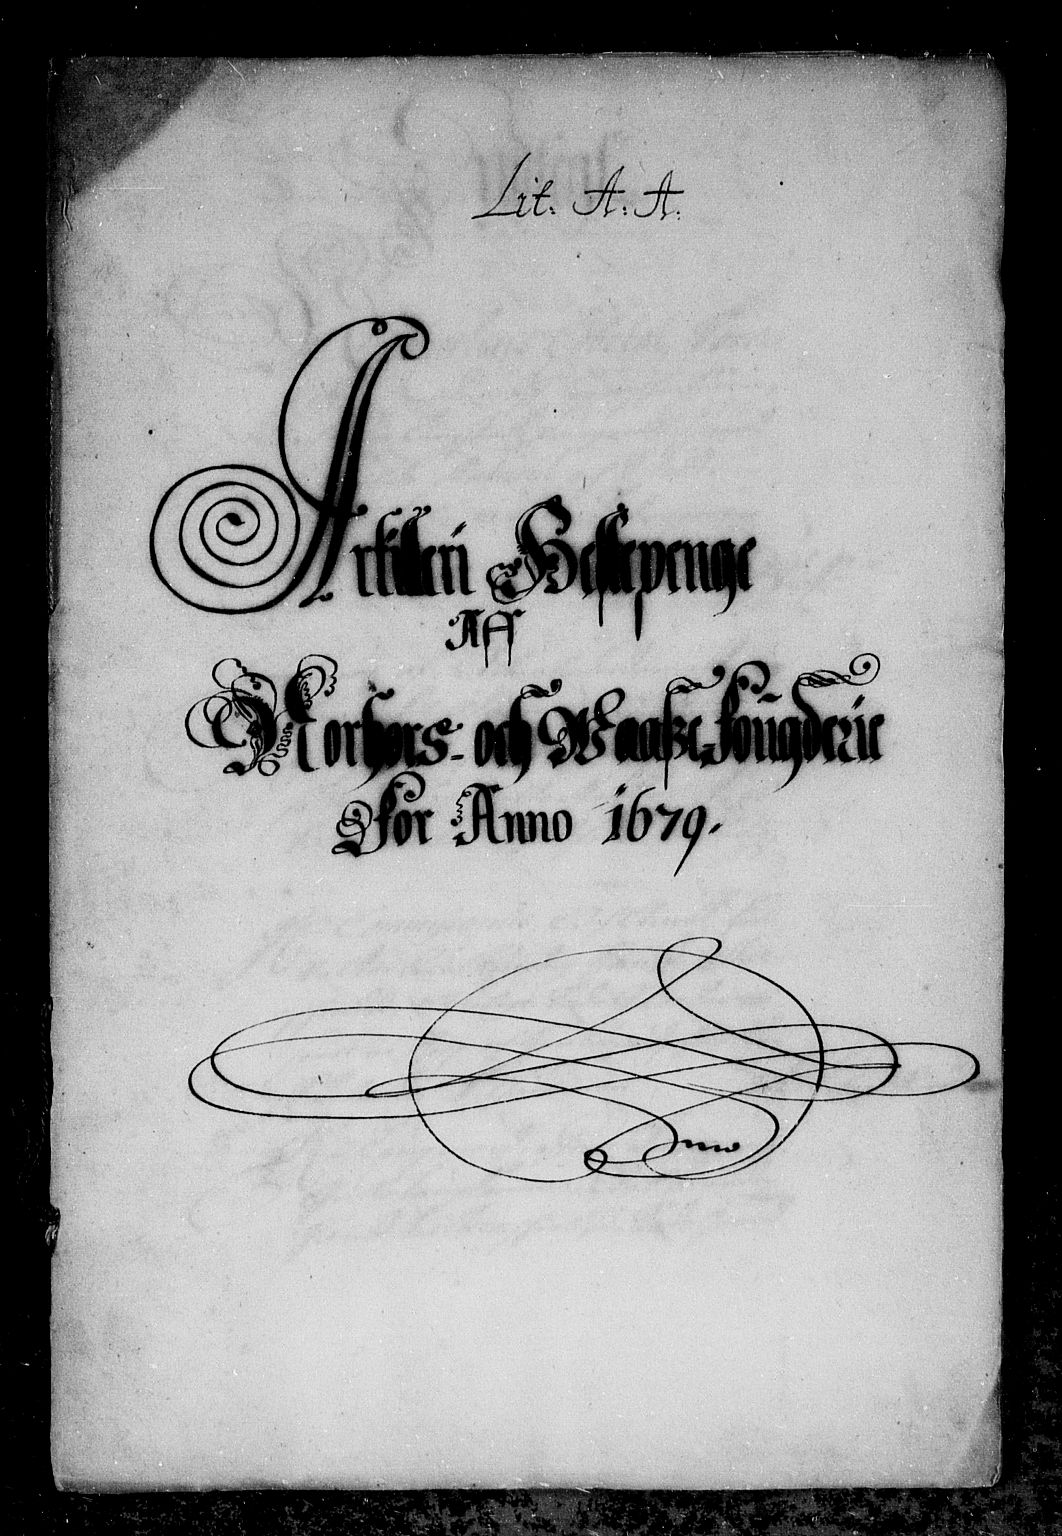 Lit. A. A.
Artilleri Hestepenge
Aff
Norhors- och Waaße fougderie
For Anno 1679.